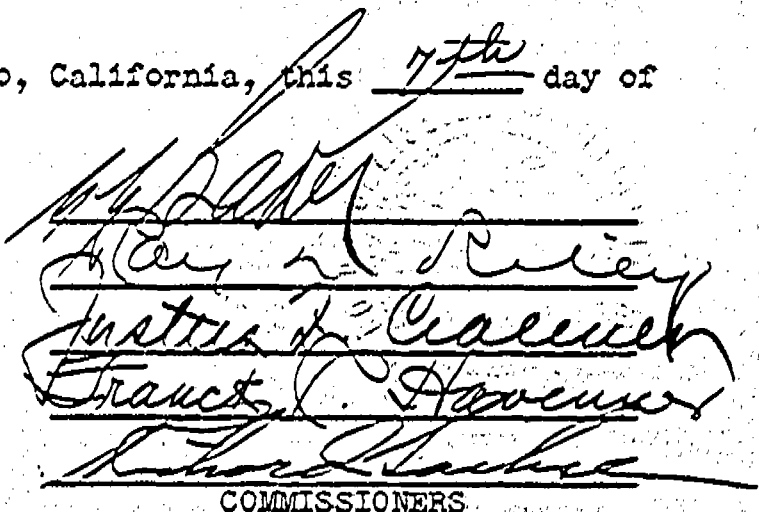 o, California, this 7th day of
Ray L. Riley
Justus F. Craemer
Franck R. Havenner
Richard Sachse
COMMISSIONERS